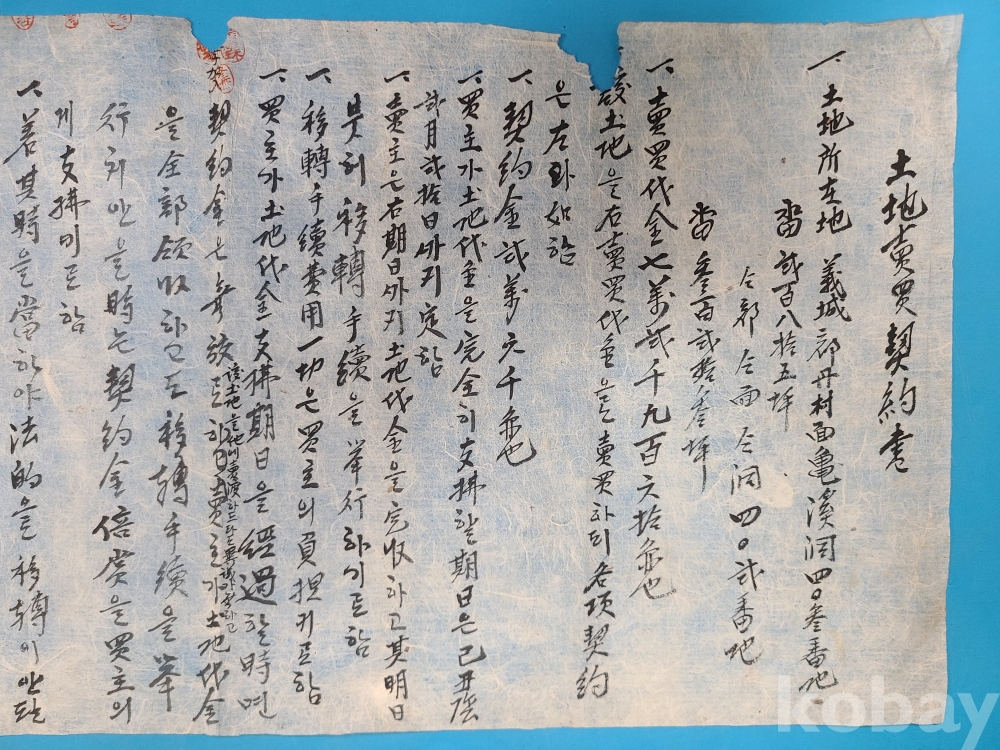 土地賣買契約書
一、土地所在地 義城郡丹村面龜溪洞四〇叁番地
畓 貳百八拾五坪
仝郡仝面仝洞四〇貳番地
畓 叁百貳拾叁坪
一、賣買代金七萬貳千九百六拾圜也
該土地을右賣買代金을賣買하되各項契約
은左와如함
一、契約金貳萬六千圜也
一、買主가土地代金을完全히支拂할期日은己丑陰
貳月貳拾日外지定함
一、賣主은右期日外지土地代金을完收하고其明日
븟허移轉手續을擧行하기로함
一、移轉手續費用一切은買主의負担키로함
一、買主가土地代金支拂期日을經過할時면
契約金은 하고賣主가土地代金
該土地을他에賣渡하드라도
을全部領收하고도移轉手續을擧
行치안을時는契約金倍償을買主의
게支拂미로함
一、若其時을當하야法的을移轉이안된
kobay